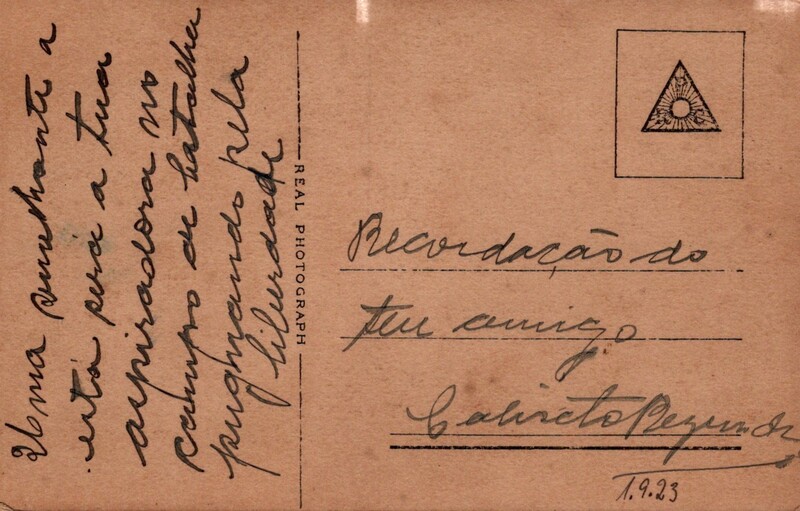 Uma semelhante a
esta será a tua
aspiradora no
campo de batalha
pugnando pela
liberdade
REAL PHOTOGRAPH
Recordação do
teu amigo
Calixto Rezende
1.9.23